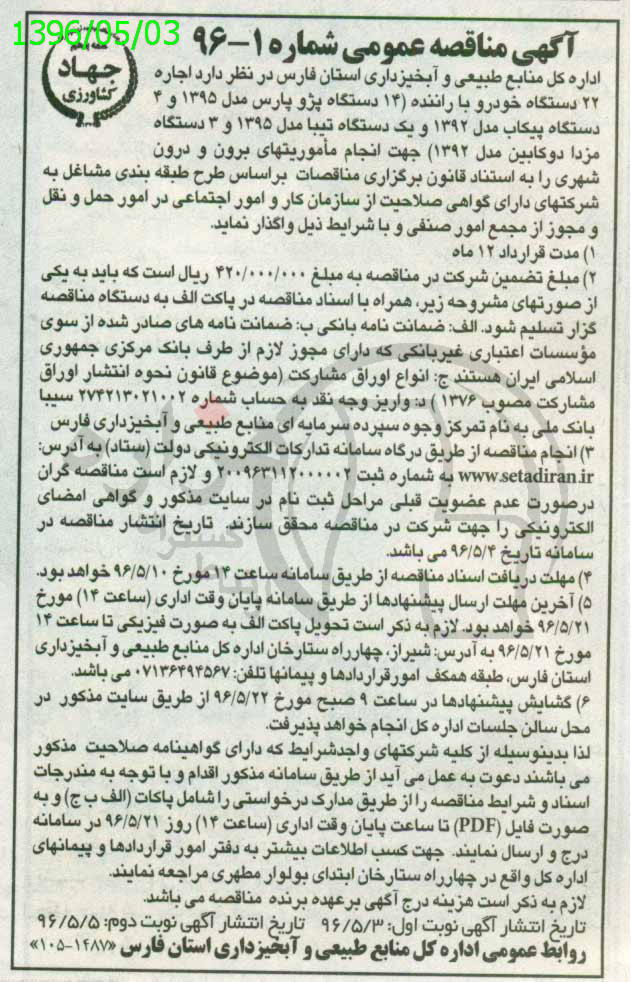 1396/05/03
آگهی مناقصه عمومی شماره ۱-۹۶
جهاد
کشاورزی
اداره کل منابع طبیعی و آبخیزداری استان فارس در نظر دارد اجاره
۲۲ دستگاه خودرو با راننده (۱۴ دستگاه پژو پارس مدل ۱۳۹۵ و ۴
دستگاه پیکاپ مدل ۱۳۹۲ و یک دستگاه تیبا مدل ۱۳۹۵ و ۳ دستگاه
مزدا دوکابین مدل ۱۳۹۲) جهت انجام مأموریتهای برون و درون
شهری را به استناد قانون برگزاری مناقصات براساس طرح طبقه بندی مشاغل به
شرکتهای دارای گواهی صلاحیت از سازمان کار و امور اجتماعی در امور حمل و نقل
و مجوز از مجمع امور صنفی و با شرایط ذیل واگذار نماید.
۱) مدت قرارداد ۱۲ ماه
۲) مبلغ تضمین شرکت در مناقصه به مبلغ ۴۲۰/۰۰۰/۰۰۰ ریال است که باید به یکی
از صورتهای مشروحه زیر، همراه با اسناد مناقصه در پاکت الف به دستگاه مناقصه
گزار تسلیم شود. الف: ضمانت نامه بانکی ب: ضمانت نامه های صادر شده از سوی
مؤسسات اعتباری غیربانکی که دارای مجوز لازم از طرف بانک مرکزی جمهوری
اسلامی ایران هستند ج: انواع اوراق مشارکت (موضوع قانون نحوه انتشار اوراق
مشارکت مصوب ۱۳۷۶ ) د: واریز وجه نقد به حساب شماره ۲۷۴۲۱۳۰۲۱۰۰۲ سیبا
بانک ملی به نام تمرکز وجوه سپرده سرمایه ای منابع طبیعی و آبخیزداری فارس
۳) انجام مناقصه از طریق درگاه سامانه تدارکات الکترونیکی دولت (ستاد) به آدرس:
www.setadiran.ir به شماره ثبت ۲۰۰۹۶۳۱۱۲۰۰۰۰۰۲ و لازم است مناقصه گران
درصورت عدم عضویت قبلی مراحل ثبت نام در سایت مذکور و گواهی امضای
الکترونیکی را جهت شرکت در مناقصه محقق سازند. تاریخ انتشار مناقصه در
سامانه تاریخ ۹۶/۵/۴ می باشد.
۴) مهلت دریافت اسناد مناقصه از طریق سامانه ساعت ۱۴ مورخ ۹۶/۵/۱۰ خواهد بود.
۵) آخرین مهلت ارسال پیشنهادها از طریق سامانه پایان وقت اداری (ساعت ۱۴) مورخ
۹۶/۵/۲۱ خواهد بود. لازم به ذکر است تحویل پاکت الف به صورت فیزیکی تا ساعت ۱۴
مورخ ۹۶/۵/۲۱ به آدرس: شیراز، چهارراه ستارخان اداره کل منابع طبیعی و آبخیزداری
استان فارس، طبقه همکف امورقراردادها و پیمانها تلفن: ۰۷۱۳۶۴۹۴۵۶۷ می باشد.
۶) گشایش پیشنهادها در ساعت ۹ صبح مورخ ۹۶/۵/۲۲ از طریق سایت مذکور در
محل سالن جلسات اداره کل انجام خواهد پذیرفت.
لذا بدینوسیله از کلیه شرکتهای واجدشرایط که دارای گواهینامه صلاحیت مذکور
می باشند دعوت به عمل می آید از طریق سامانه مذکور اقدام و با توجه به مندرجات
اسناد و شرایط مناقصه را از طریق مدارک درخواستی را شامل پاکات (الف ب ج) و به
صورت فایل (PDF) تا ساعت پایان وقت اداری (ساعت ۱۴) روز ۹۶/۵/۲۱ در سامانه
درج و ارسال نمایند. جهت کسب اطلاعات بیشتر به دفتر امور قراردادها و پیمانهای
اداره کل واقع در چهارراه ستارخان ابتدای بولوار مطهری مراجعه نمایند.
لازم به ذکر است هزینه درج آگهی برعهده برنده مناقصه می باشد.
تاریخ انتشار آگهی نوبت اول: ۹۶/۵/۳ تاریخ انتشار آگهی نوبت دوم: ۹۶/۵/۵
روابط عمومی اداره کل منابع طبیعی و آبخیزداری استان فارس «۱۴۸۷-۱۰۵»